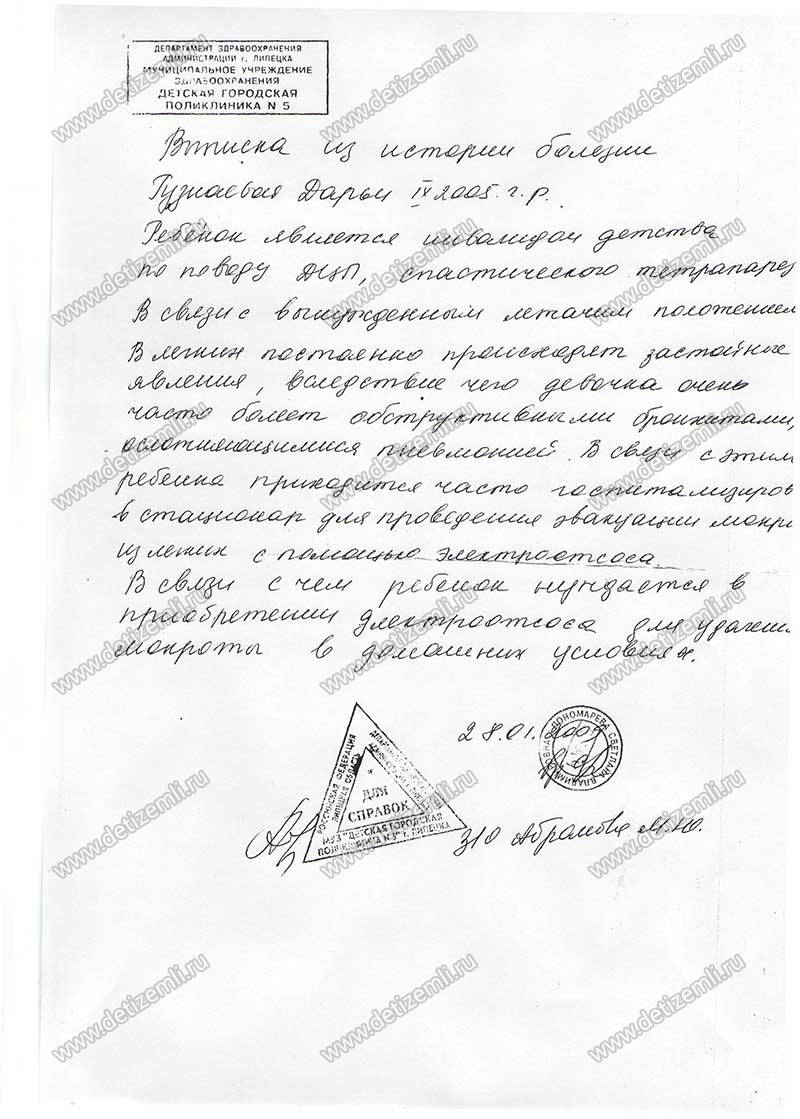 ДЕПАРТАМЕНТ ЗДРАВООХРАНЕНИЯ
АДМИНИСТРАЦИИ г. ЛИПЕЦКА
МУНИЦИПАЛЬНОЕ УЧРЕЖДЕНИЕ
ЗДРАВООХРАНЕНИЯ
ДЕТСКАЯ ГОРОДСКАЯ
ПОЛИКЛИНИКА N 5
Выписка из истории болезни
Дарьи IX 2005. г.р.
Ребенок является инвалидом детства
по поводу ДЦП, спастического тетрапарез
В связи с вынужденным лежачим положением
В легких постоянно происходят застойные
явления, вследствие чего девочка очень
часто болеет обструктивными бронхитами,
осложняющимися пневмонией. В связи с этим
ребенка приходится часто госпитализиров
в стационар для проведения эвакуации мокро
из легких с помощью электроотсоса.
В связи с чем ребенок нуждается в
приобретении электроотсоса для удален
мокроты в домашних условиях.
28.01.2009
ПОНОМАРЕВА СВЕТЛАНА ВЛАДИМИРОВНА
РОССИЙСКАЯ ФЕДЕРАЦИЯ
ЛИПЕЦКАЯ ОБЛАСТЬ
ДЛЯ
СПРАВОК
МУЗ "ДЕТСКАЯ ГОРОДСКАЯ
ПОЛИКЛИНИКА N 5" г. ЛИПЕЦКА
з/о Абрамова М.Ю.
www.detizemli.ru
www.detizemli.ru
www.detizemli.ru
www.detizemli.ru
www.detizemli.ru
www.detizemli.ru
www.detizemli.ru
www.detizemli.ru
www.detizemli.ru
www.detizemli.ru
www.detizemli.ru
www.detizemli.ru